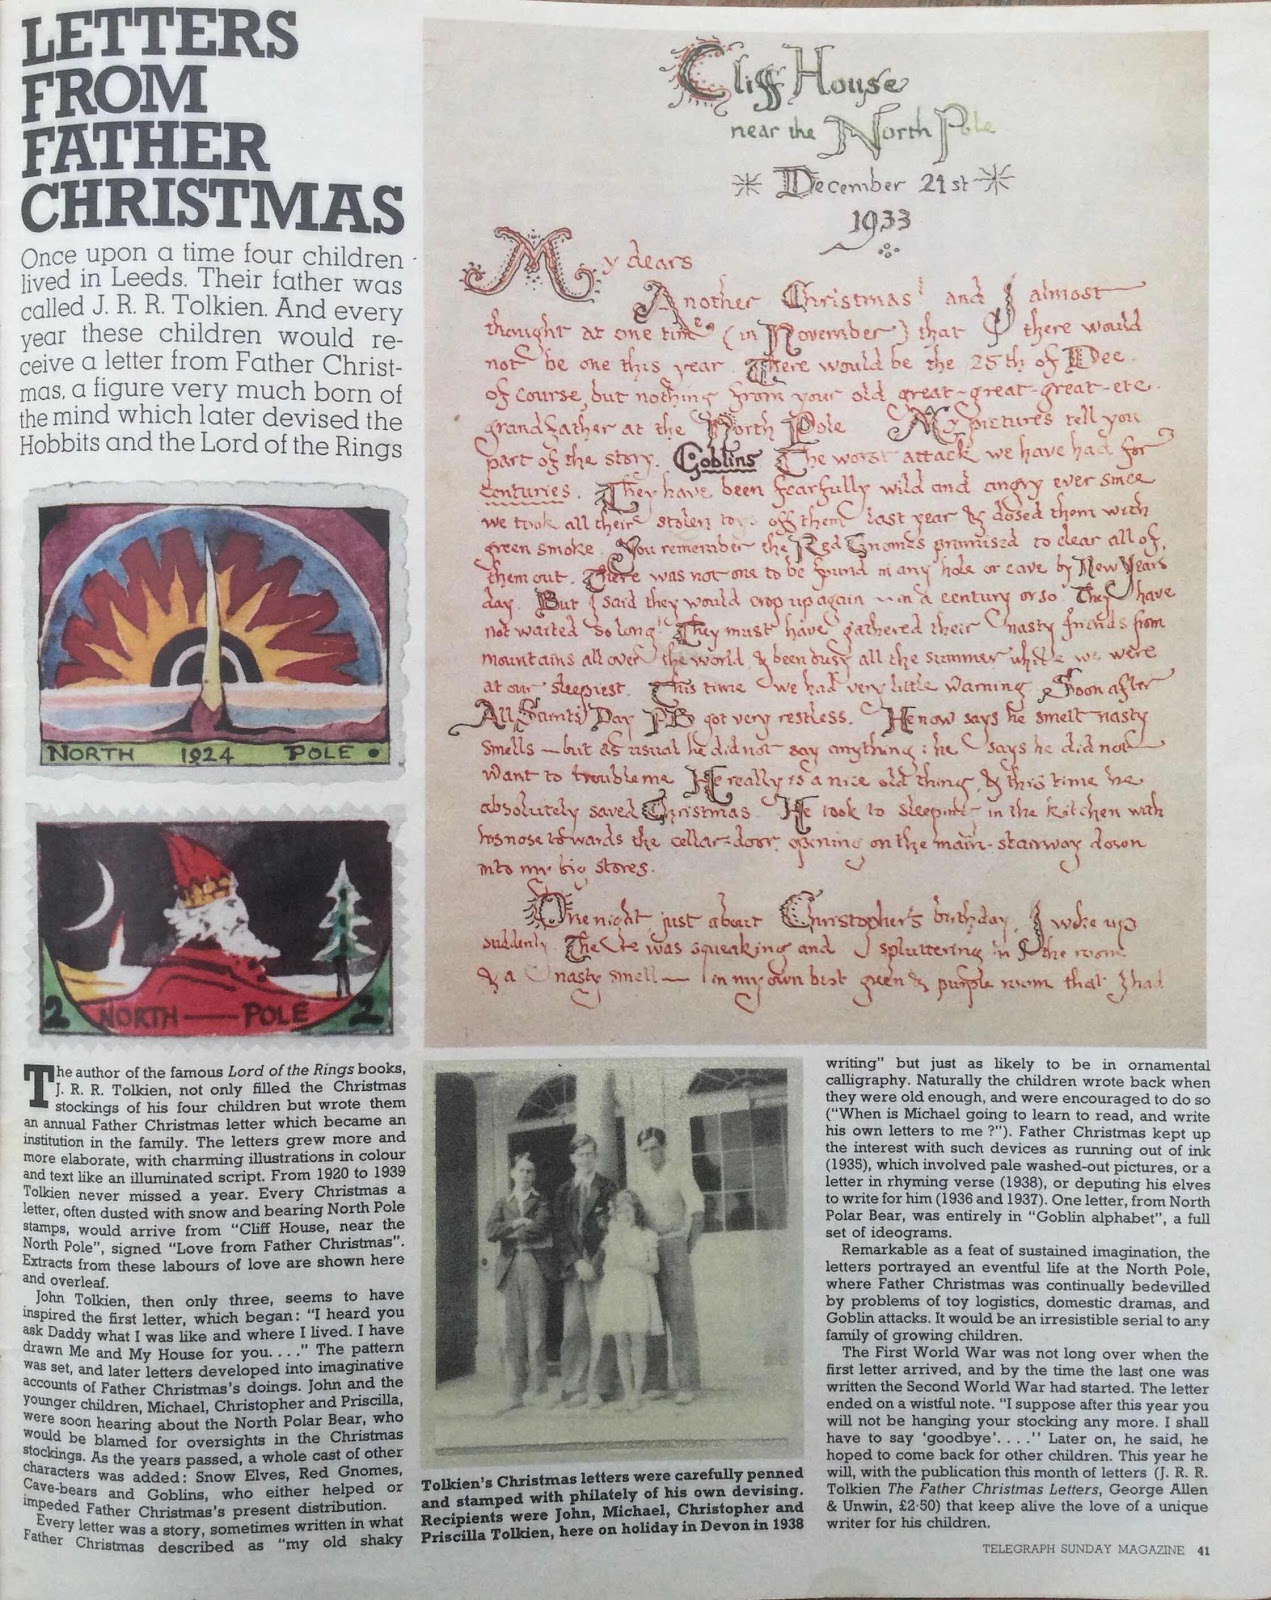 LETTERS
FROM
FATHER
CHRISTMAS
Once upon a time four children
lived in Leeds. Their father was
called J. R. R. Tolkien. And every
year these children would re-
ceive a letter from Father Christ-
mas, a figure very much born of
the mind which later devised the
Hobbits and the Lord of the Rings
NORTH 1924 POLE
2 NORTH — POLE 2
Cliff House
near the North Pole
December 21st
1933
My dears
Another Christmas! and I almost
thought at one time (in November) that there would
not be one this year. There would be the 25th of Dec.
of course, but nothing from your old great-great-great-etc.
grandfather at the North Pole. My pictures tell you
part of the story. Goblins. The worst attack we have had for
centuries. They have been fearfully wild and angry ever since
we took all their stolen toys off them last year & dosed them with
green smoke. You remember the Red Gnomes promised to clear all of
them out. There was not one to be found in any hole or cave by New Years
day. But I said they would crop up again — in a century or so. They have
not waited so long! They must have gathered their nasty friends from
mountains all over the world, & been busy all the summer while we were
at our sleepiest. This time we had very little warning. Soon after
All Saints' Day PB got very restless. He now says he smelt nasty
smells — but as usual he did not say anything: he says he did not
want to trouble me. He really is a nice old thing, & this time he
absolutely saved Christmas. He took to sleeping in the kitchen with
his nose towards the cellar-door, opening on the main-stairway down
into my big stores.
One night just about Christopher's birthday, I woke up
suddenly. There was squeaking and spluttering in the room
& a nasty smell — in my own best green & purple room that I had
The author of the famous Lord of the Rings books,
J. R. R. Tolkien, not only filled the Christmas
stockings of his four children but wrote them
an annual Father Christmas letter which became an
institution in the family. The letters grew more and
more elaborate, with charming illustrations in colour
and text like an illuminated script. From 1920 to 1939
Tolkien never missed a year. Every Christmas a
letter, often dusted with snow and bearing North Pole
stamps, would arrive from "Cliff House, near the
North Pole", signed "Love from Father Christmas".
Extracts from these labours of love are shown here
and overleaf.
John Tolkien, then only three, seems to have
inspired the first letter, which began: "I heard you
ask Daddy what I was like and where I lived. I have
drawn Me and My House for you. . . ." The pattern
was set, and later letters developed into imaginative
accounts of Father Christmas's doings. John and the
younger children, Michael, Christopher and Priscilla,
were soon hearing about the North Polar Bear, who
would be blamed for oversights in the Christmas
stockings. As the years passed, a whole cast of other
characters was added: Snow Elves, Red Gnomes,
Cave-bears and Goblins, who either helped or
impeded Father Christmas's present distribution.
Every letter was a story, sometimes written in what
Father Christmas described as "my old shaky
Tolkien's Christmas letters were carefully penned
and stamped with philately of his own devising.
Recipients were John, Michael, Christopher and
Priscilla Tolkien, here on holiday in Devon in 1938
writing" but just as likely to be in ornamental
calligraphy. Naturally the children wrote back when
they were old enough, and were encouraged to do so
("When is Michael going to learn to read, and write
his own letters to me ?"). Father Christmas kept up
the interest with such devices as running out of ink
(1935), which involved pale washed-out pictures, or a
letter in rhyming verse (1938), or deputing his elves
to write for him (1936 and 1937). One letter, from North
Polar Bear, was entirely in "Goblin alphabet", a full
set of ideograms.
Remarkable as a feat of sustained imagination, the
letters portrayed an eventful life at the North Pole,
where Father Christmas was continually bedevilled
by problems of toy logistics, domestic dramas, and
Goblin attacks. It would be an irresistible serial to any
family of growing children.
The First World War was not long over when the
first letter arrived, and by the time the last one was
written the Second World War had started. The letter
ended on a wistful note. "I suppose after this year you
will not be hanging your stocking any more. I shall
have to say 'goodbye'. . . ." Later on, he said, he
hoped to come back for other children. This year he
will, with the publication this month of letters (J. R. R.
Tolkien The Father Christmas Letters, George Allen
& Unwin, £2·50) that keep alive the love of a unique
writer for his children.
TELEGRAPH SUNDAY MAGAZINE 41